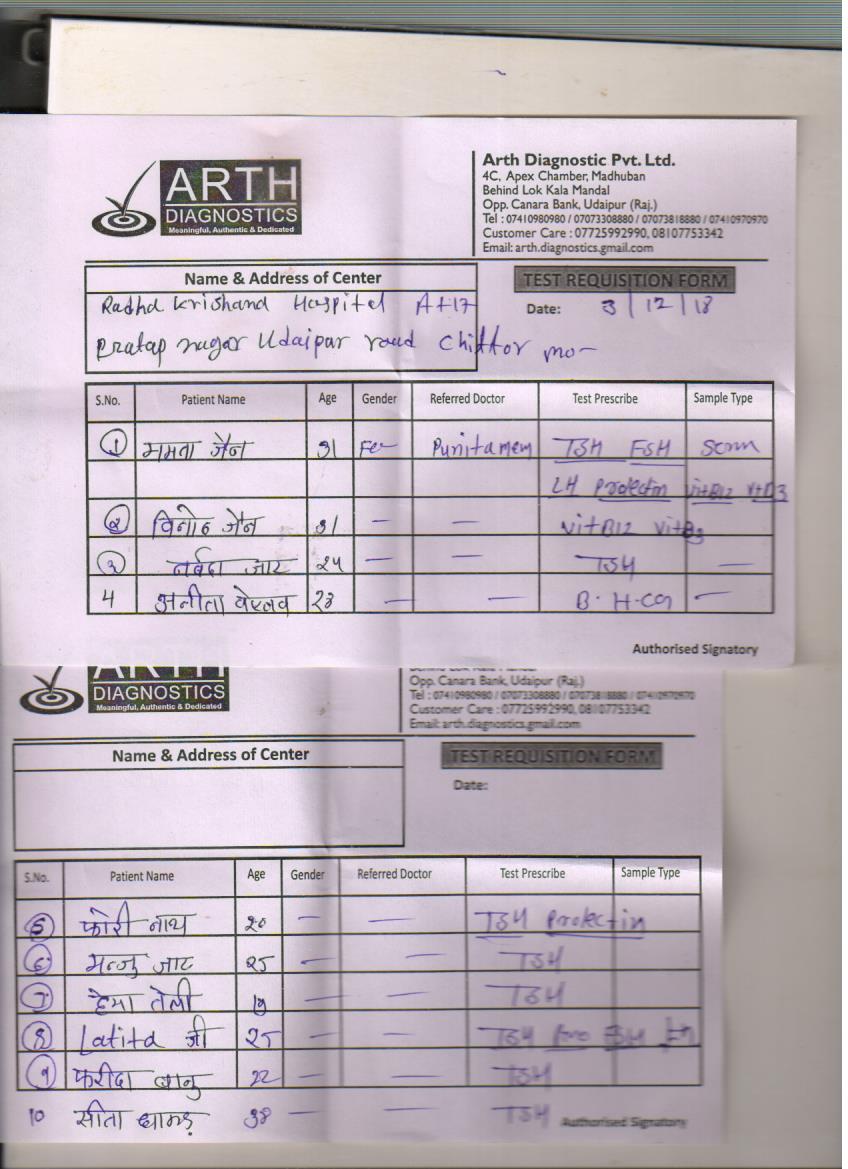 ARTH
DIAGNOSTICS
Meaningful, Authentic & Dedicated
Arth Diagnostic Pvt. Ltd.
4C, Apex Chamber, Madhuban
Behind Lok Kala Mandal
Opp. Canara Bank, Udaipur (Raj.)
Tel : 07410980980 / 07073308880 / 07073818880 / 07410970970
Customer Care : 07725992990, 08107753342
Email: arth.diagnostics.gmail.com
Name & Address of Center
TEST REQUISITION FORM
Radha Krishana Hospital A+17
Date: 3/12/18
Pratap nagar Udaipur road Chittor
S.No. Patient Name Age Gender Referred Doctor Test Prescribe Sample Type
1 ममता जैन 31 Fe Punitamem TSH FSH
LH Prolectin vitB12 vtD3
2 विनोद जैन 31 — — vitB12
3 नर्वदा जाट २५ — — TSH —
4 अनीता २३ — — B.H.CG —
Authorised Signatory
ARTH
DIAGNOSTICS
Meaningful, Authentic & Dedicated
Behind Lok Kala Mandal
Opp. Canara Bank, Udaipur (Raj.)
Tel : 07410980980 / 07073308880 / 07073818880 / 07410970970
Customer Care : 07725992990, 08107753342
Email: arth.diagnostics.gmail.com
Name & Address of Center
TEST REQUISITION FORM
Date:
S.No. Patient Name Age Gender Referred Doctor Test Prescribe Sample Type
5 फोरी नाथ २० — — TSH Prolectin
6 मन्जु जाट २5 — — TSH
7 हेमा तेली 19 — — TSH
8 Latita जी २5 — — TSH FSH
9 फरीदा बानु 22 — — TSH
10 सीता धामड़ 38 — — TSH
Authorised Signatory